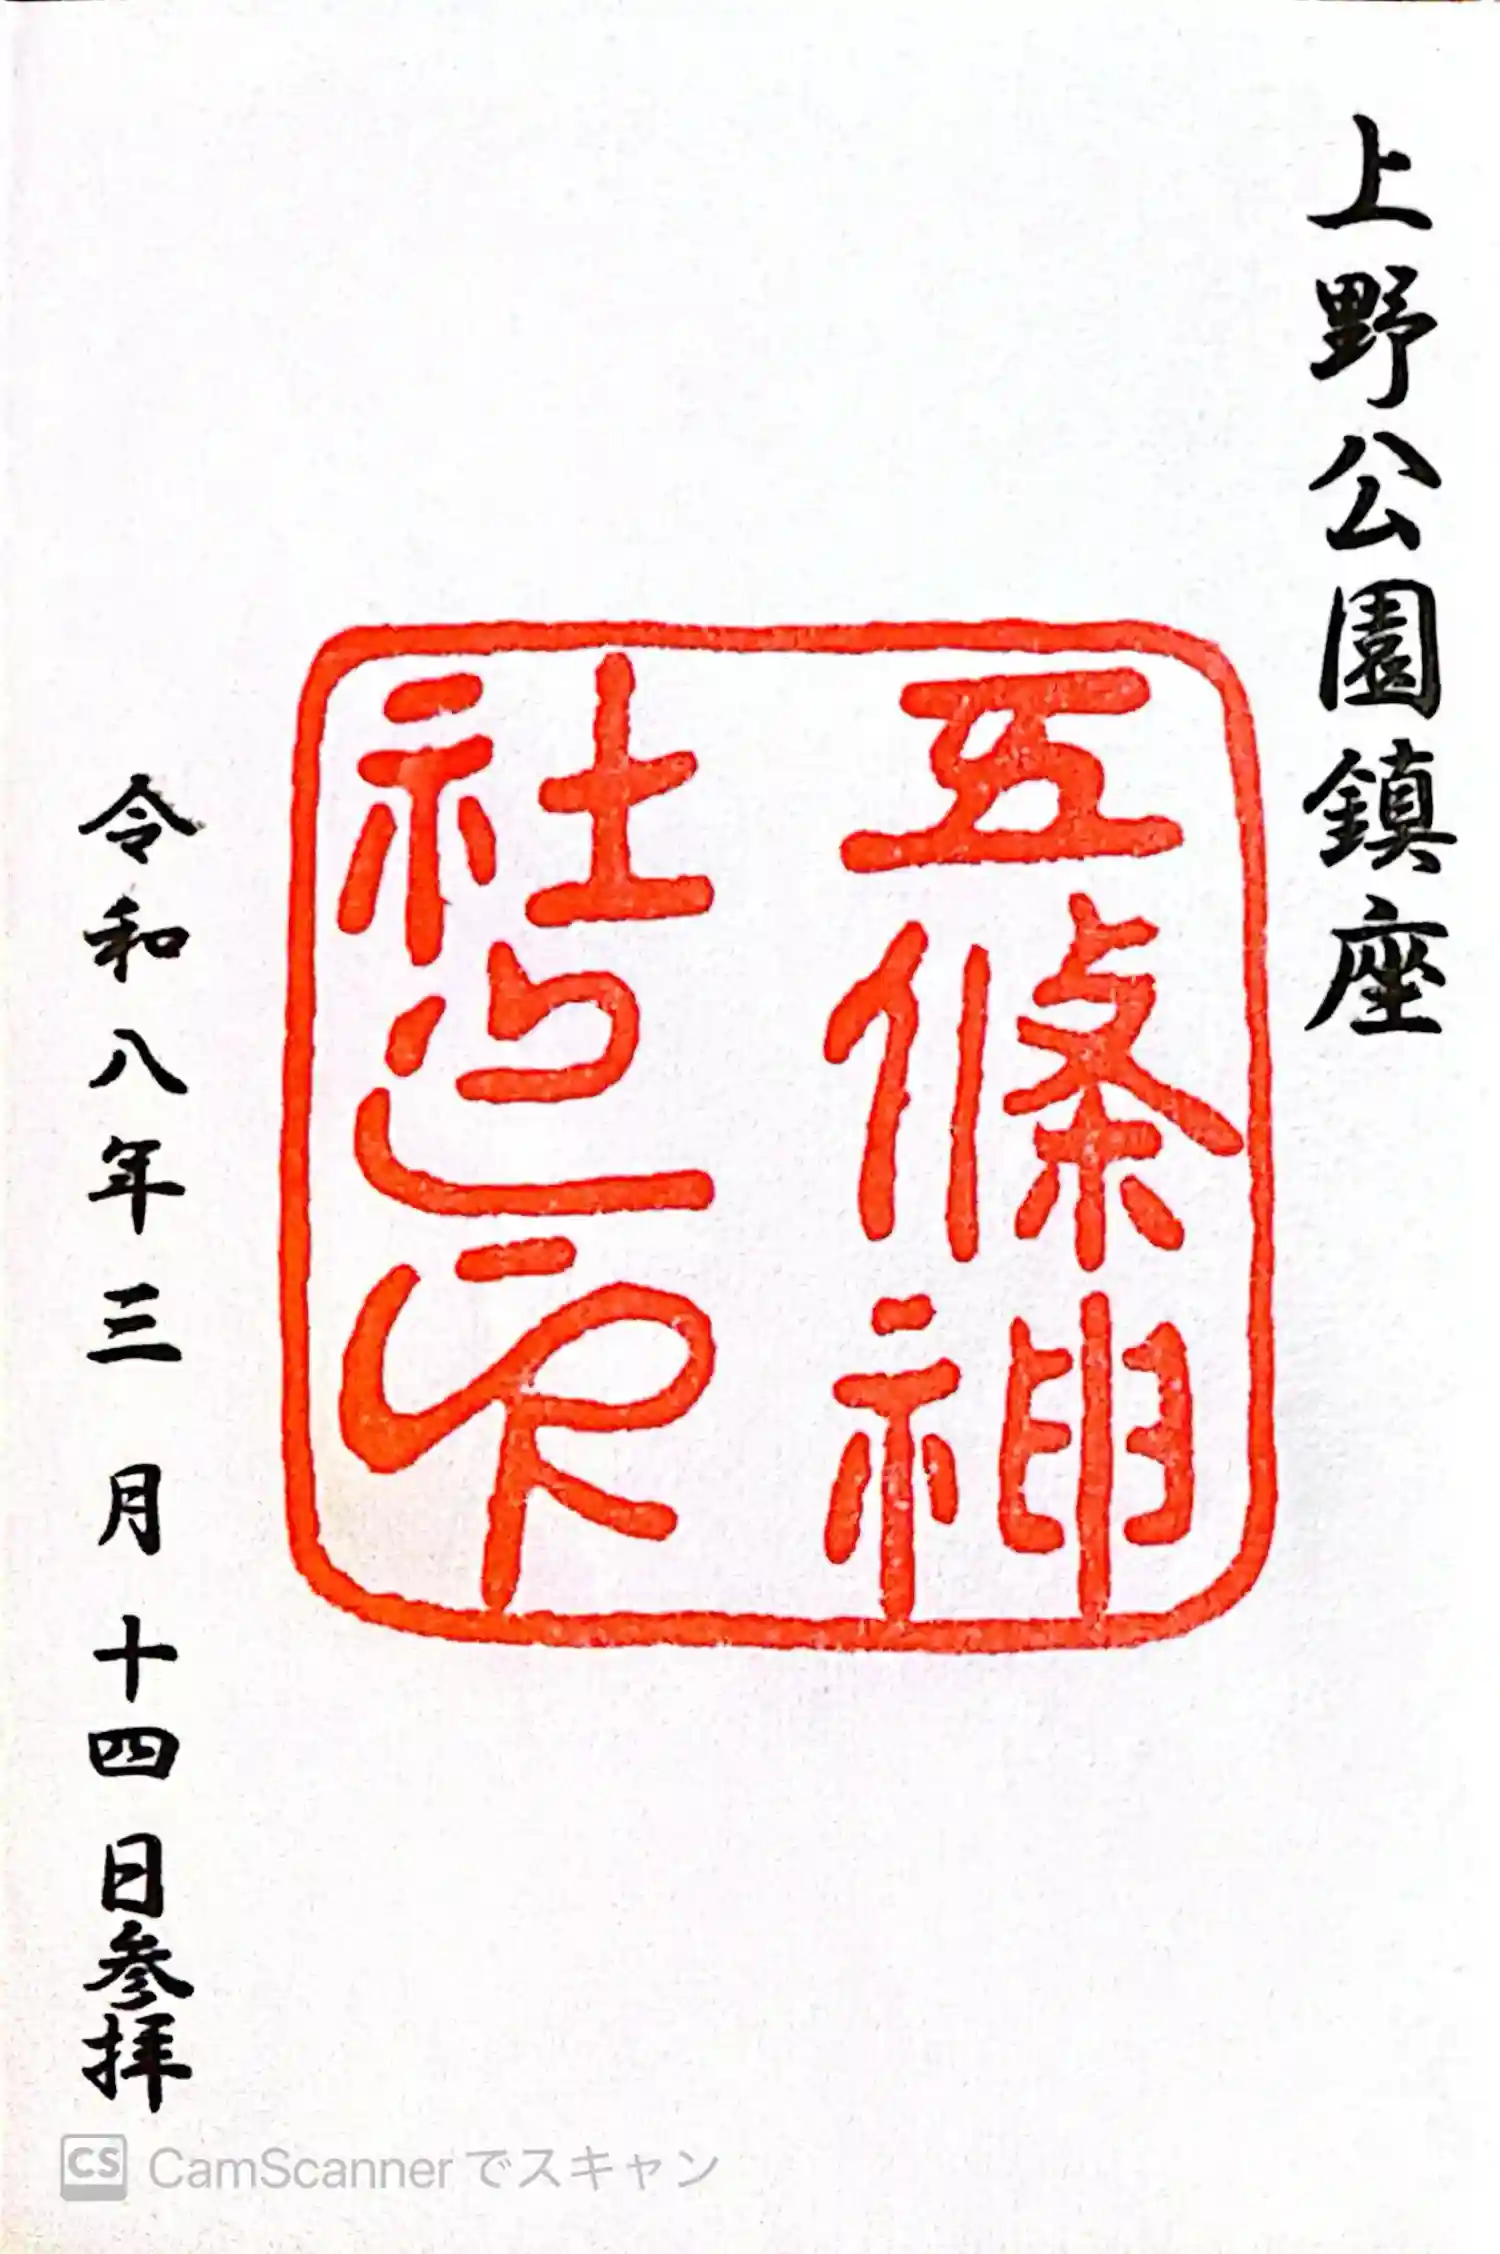 上野公園鎮座
五條神
社之印
令和八年三月十四日参拝
CS CamScannerでスキャン